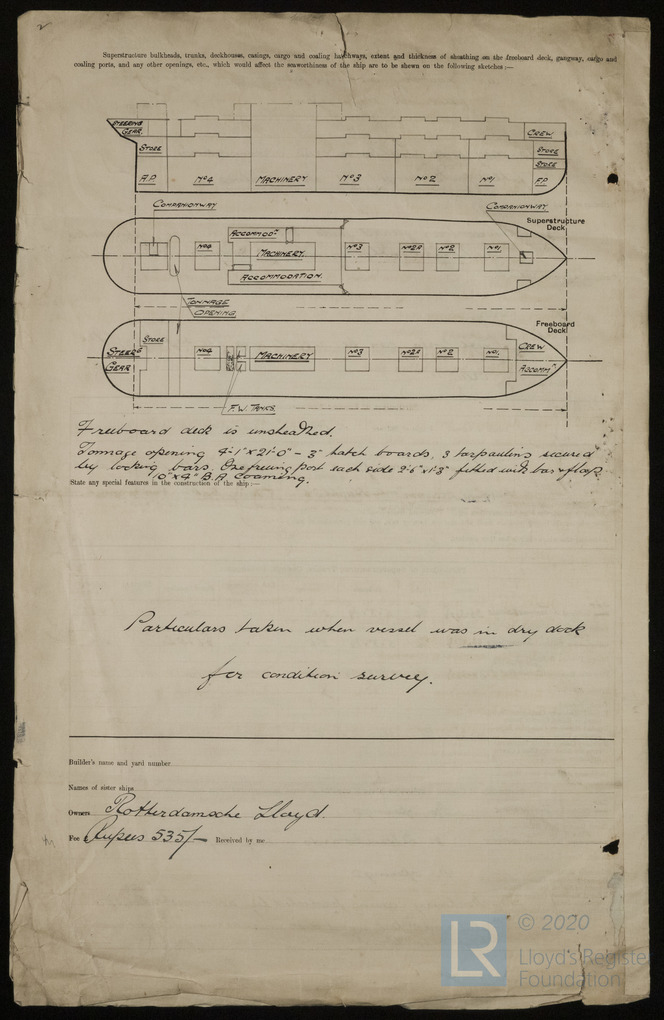 2
Superstructure bulkheads, trunks, deckhouses, casings, cargo and coaling hatchways, extent and thickness of sheathing on the freeboard deck, gangway, cargo and
coaling ports, and any other openings, etc., which would affect the seaworthiness of the ship are to be shewn on the following sketches:—
STEERING
GEAR.
STORE
CREW
STORE
STORE
A.P.
No4
MACHINERY
No3
No2
No1
F.P.
COMPANIONWAY
COMPANIONWAY
Superstructure
Deck
ACCOMMODN
No4
MACHINERY.
No3
No2A
No2
No1
ACCOMMODATION.
TONNAGE
OPENING
Freeboard
Deck
STORE
STEERG
GEAR
No4
MACHINERY
No3
No2A
No2
No1.
CREW
ACCOMMN
F.W. TANKS
Freeboard deck is unsheathed.
Tonnage opening 4'-1" x 21'-0" – 3" hatch boards, 3 tarpaulins secured
by locking bars. One freeing port each side 2'-6" x 1'-3" fitted with bar & flap
10" x 4" B.A. Coaming.
State any special features in the construction of the ship:—
Particulars taken when vessel was in dry dock
for condition survey.
Builder's name and yard number
Names of sister ships
Owners Rotterdamsche Lloyd.
Fee Rupees 535/— Received by me
LR
© 2020
Lloyd's Register
Foundation